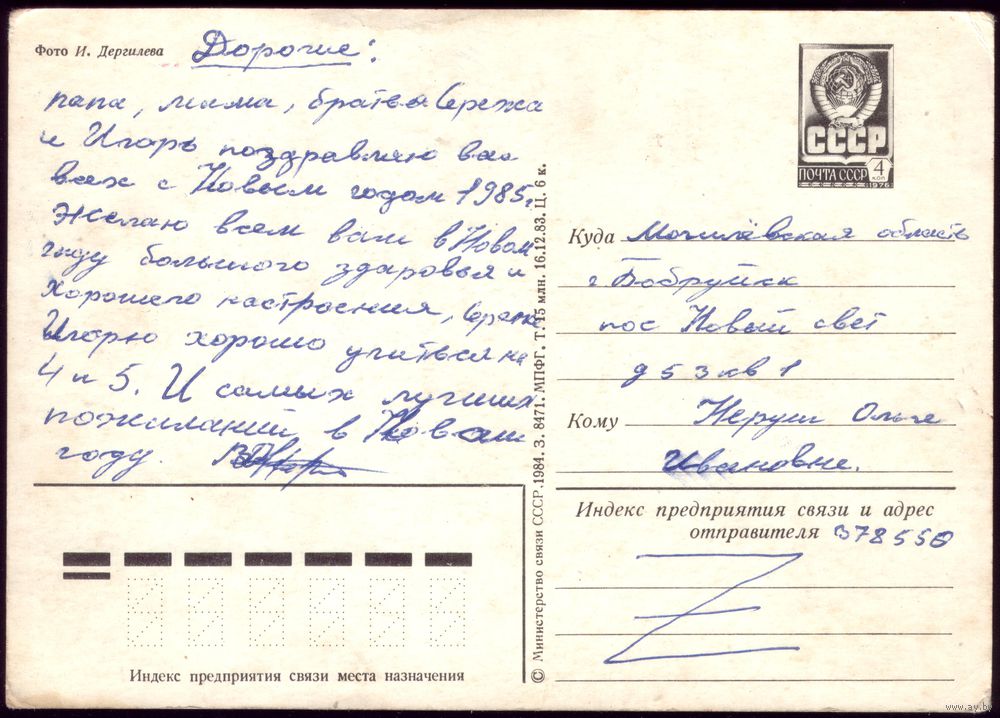 Фото И. Дергилева
Дорогие:
папа, мама, братья Сережа
и Игорь поздравляю вас
всех с Новым годом 1985г.
Желаю всем вам в Новом
году большого здоровья и
хорошего настроения, Сереже
Игорю хорошо учиться на
4 и 5. И самых лучших
пожиланий в Новом
году.
СССР
ПОЧТА СССР 4 КОП
1976
Куда Могилёвская область
г Бобруйск
пос Новый свет
д 53 кв 1
Кому Неруш Ольге
Ивановне.
Индекс предприятия связи и адрес
отправителя 378550
© Министерство связи СССР. 1984. З. 8471. МПФГ. Т. 15 млн. 16.12.83. Ц. 6 к.
Индекс предприятия связи места назначения
www.ay.by